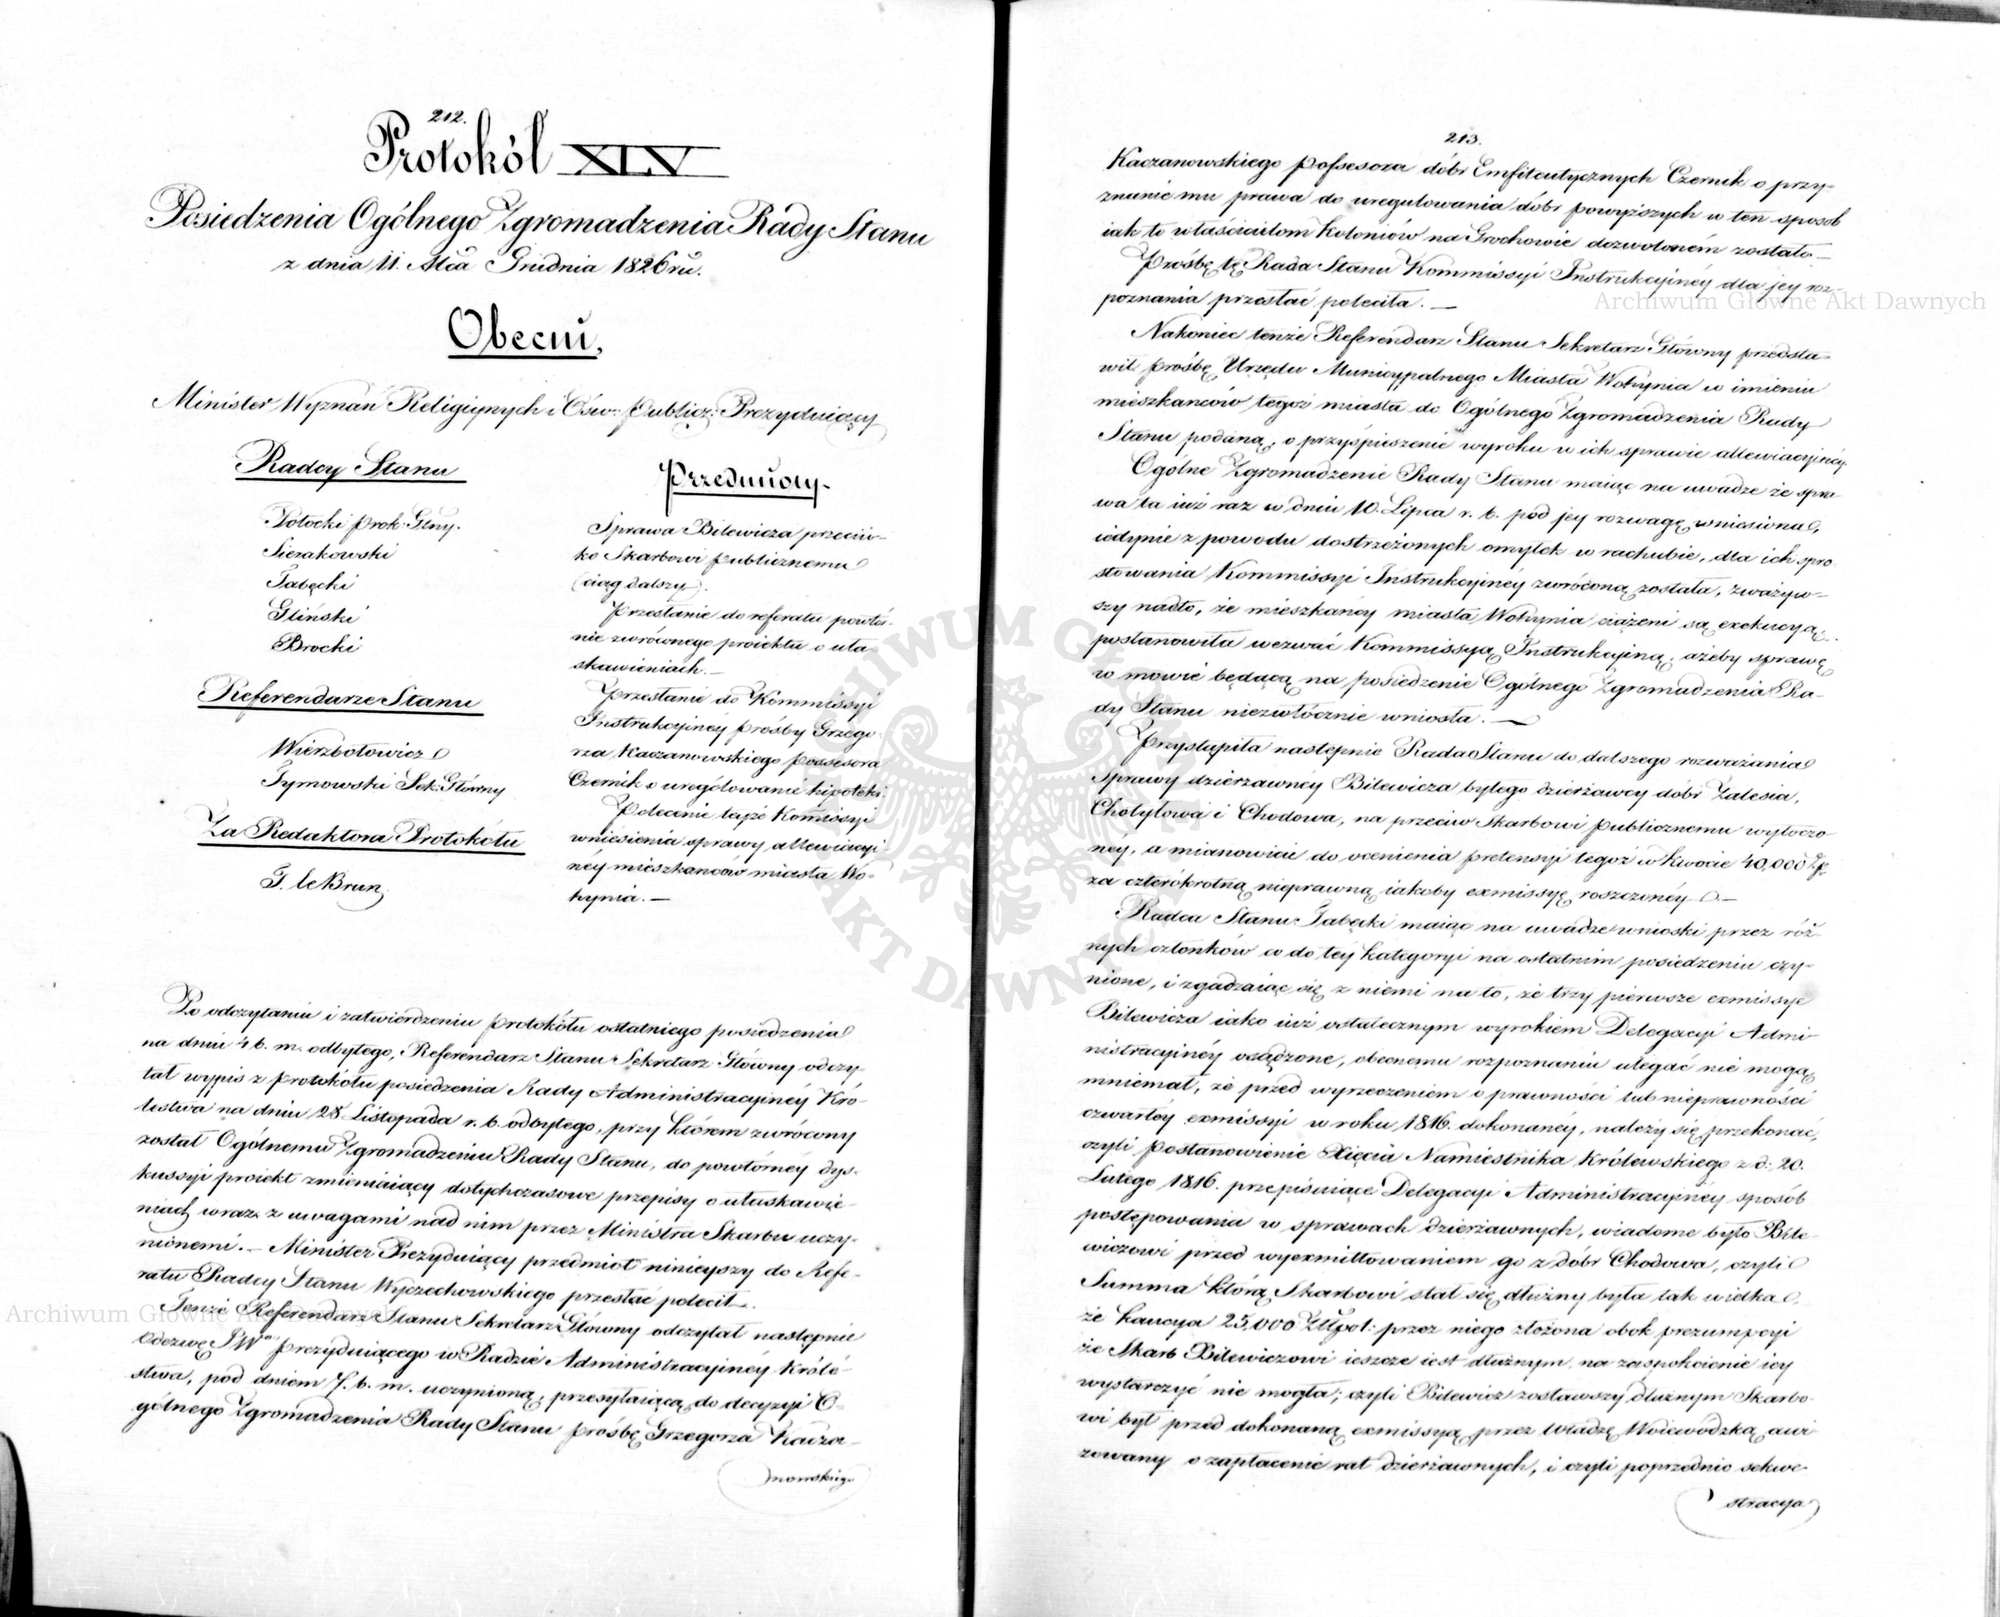 212.
Protokół XLV
Posiedzenia Ogólnego Zgromadzenia Rady Stanu
z dnia 11. Mca Grudnia 1826 ru.
Obecni,
Minister Wyznań Religiynych i Ośw: publicz: Prezyduiący
Radcy Stanu
Potocki prok. Glny.
Sierakowski
Tabęcki
Gliński
Brocki
Referendarze Stanu
Wierzbołowicz
Tymowski Sek: Główny
Za Redaktora Protokółu
T. le Brun
Przedmioty.
Sprawa Bilewicza przeciw-
ko Skarbowi publicznemu
(ciąg dalszy).
Przesłanie do referatu powtór-
nie zwrócnego proiektu o uła-
skawieniach. —
Przesłanie do Kommissyi
Instrukcyiney prośby Grzego-
rza Kaczanowskiego possesora
Czernik o urególowanie hipoteki.
Polecenie teyże Kommissyi
wniesienia sprawy allewiacyi-
néy mieszkanców miasta Wo-
hynia. —
Po odczytaniu i zatwierdzeniu protokółu ostatniego posiedzenia
na dniu 4 b. m. odbytego, Referendarz Stanu Sekretarz Główny odczy-
tał wypis z protokółu posiedzenia Rady Administracyinéy Kró-
lestwa na dniu 28 Listopada r. b. odbytego, przy którem zwrócony
został Ogólnemu Zgromadzeniu Rady Stanu, do powtórnéy dys-
kussyi proiekt zmieniaiący dotychczasowe przepisy o ułaskawie-
niach wraz z uwagami nad nim przez Ministra Skarbu uczy-
nionemi. — Minister Prezyduiący przedmiot ninieyszy do Refe-
ratu Radcy Stanu Wyczechowskiego przesłać polecił.
Tenże Referendarz Stanu Sekretarz Główny odczytał następnie
Odezwę JW° prezyduiącego w Radzie Administracyinéy Króle-
stwa, pod dniem 7. b. m. uczynioną, przesyłaiącą do decyzyi O-
gólnego Zgromadzenia Rady Stanu prośbę Grzegorza Kacza-
nowskiego
213.
Kaczanowskiego possesora dóbr Emfiteutycznych Czernik o przy-
znanie mu prawa do uregulowania dóbr powyższych w ten sposób
iak to właścicielom Koloniów na Grochowie dozwolonem zostało —
Prośbę tę Rada Stanu Kommissyi Instrukcyinéy dla jey roz-
poznania przesłać poleciła. —
Nakoniec tenże Referendarz Stanu Sekretarz Główny przedsta-
wił prośbę Urzędu Municypalnego Miasta Wohynia w imieniu
mieszkanców tegoż miasta do Ogólnego Zgromadzenia Rady
Stanu podaną, o przyśpieszenie wyroku w ich sprawie allewiacyinéy.
Ogólne Zgromadzenie Rady Stanu maiąc na uwadze że spra-
wa ta iuż raz w dniu 10. Lipca r. b. pod jey rozwagę wniesiona,
iedynie z powodu dostrzeżonych omyłek w rachubie, dla ich spro-
stowania Kommissyi Instrukcyiney zwróconą została, zważyw-
szy nadto, że mieszkańcy miasta Wohynia ciążeni są exekucyą,
postanowiła wezwać Kommissyą Instrukcyiną, ażeby sprawę
w mowie będącą na posiedzenie Ogólnego Zgromadzenia Ra-
dy Stanu niezwłócznie wniosła. —
Przystąpiła następnie Rada Stanu do dalszego rozważania
sprawy dzierzawnéy Bilewicza byłego dzierżawcy dóbr Zalesia,
Chotyłowa i Chodowa, na przeciw Skarbowi publicznemu wytoczo-
néy, a mianowicie do ocenienia pretensyi tegoż w kwocie 40,000 Zp.
za czterókrotną nieprawną iakoby exmissyę roszczonéy. —
Radca Stanu Tabęcki maiąc na uwadze wnioski przez róż-
nych członków co do tey kategoryi na ostatnim posiedzeniu czy-
nione, i zgadzaiąc się z niemi na to, że trzy pierwsze exmissye
Bilewicza iako iuż ostatecznym wyrokiem Delegacyi Admi-
nistracyinéy osądzone, obecnemu rozpoznaniu ulegać nie mogą,
mniemał, że przed wyrzeczeniem o prawności lub nieprawności
czwartéy exmissyi w roku 1816. dokonanéy, należy się przekonać,
czyli postanowienie Xięcia Namiestnika Królewskiego z d: 20.
Lutego 1816. przepisuiące Delegacyi Administracyinéy sposób
postępowania w sprawach dzierżawnych, wiadome było Bile-
wiczowi przed wyexmittowaniem go z dóbr Chodowa, czyli
Summa którą Skarbowi stał się dłużny była tak wielka,
że kaucya 25,000 Złpol: przez niego złożona obok prezumpcyi
że Skarb Bilewiczowi ieszcze iest dłużnym, na zaspokoienie iey
wystarczyć nie mogła; czyli Bilewicz zostawszy dłużnym Skarbo-
wi był przed dokonaną exmissyą przez Władzę Woiewódzką awi-
zowany o zapłacenie rat dzierżawnych, i czyli poprzednio sekwe-
stracya
Archiwum Główne Akt Dawnych
Archiwum Główne Akt Dawnych
ARCHIWUM GŁÓWNE AKT DAWNYCH